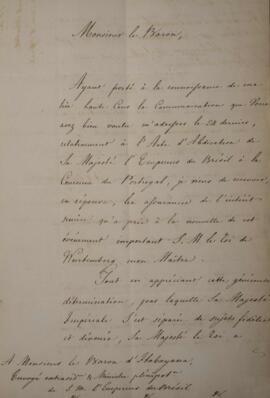 Monsieur le Baron,
Ayant porté à la connaissance de ma
très haute Cour la Communication que Vous
avez bien voulu m'adresser le 24 dernier,
relativement à l'Acte d'Abdication de
Sa Majesté l'Empereur du Brésil à la
Couronne de Portugal, je viens de recevoir,
en réponse, les assurances de l'intérêt
qu'a pris à la nouvelle de cet
événement important S. M. le Roi de
Wurtemberg, mon Maître.
Tout en appréciant cette généreuse
détermination, par laquelle Sa Majesté
Impériale s'est séparée de sujets fidèles
et dévoués, Sa Majesté le Roi a
A Monsieur le Baron d'Itabayana,
Envoyé extraord. & Ministre plénipot.
de S. M. l'Empereur du Brésil